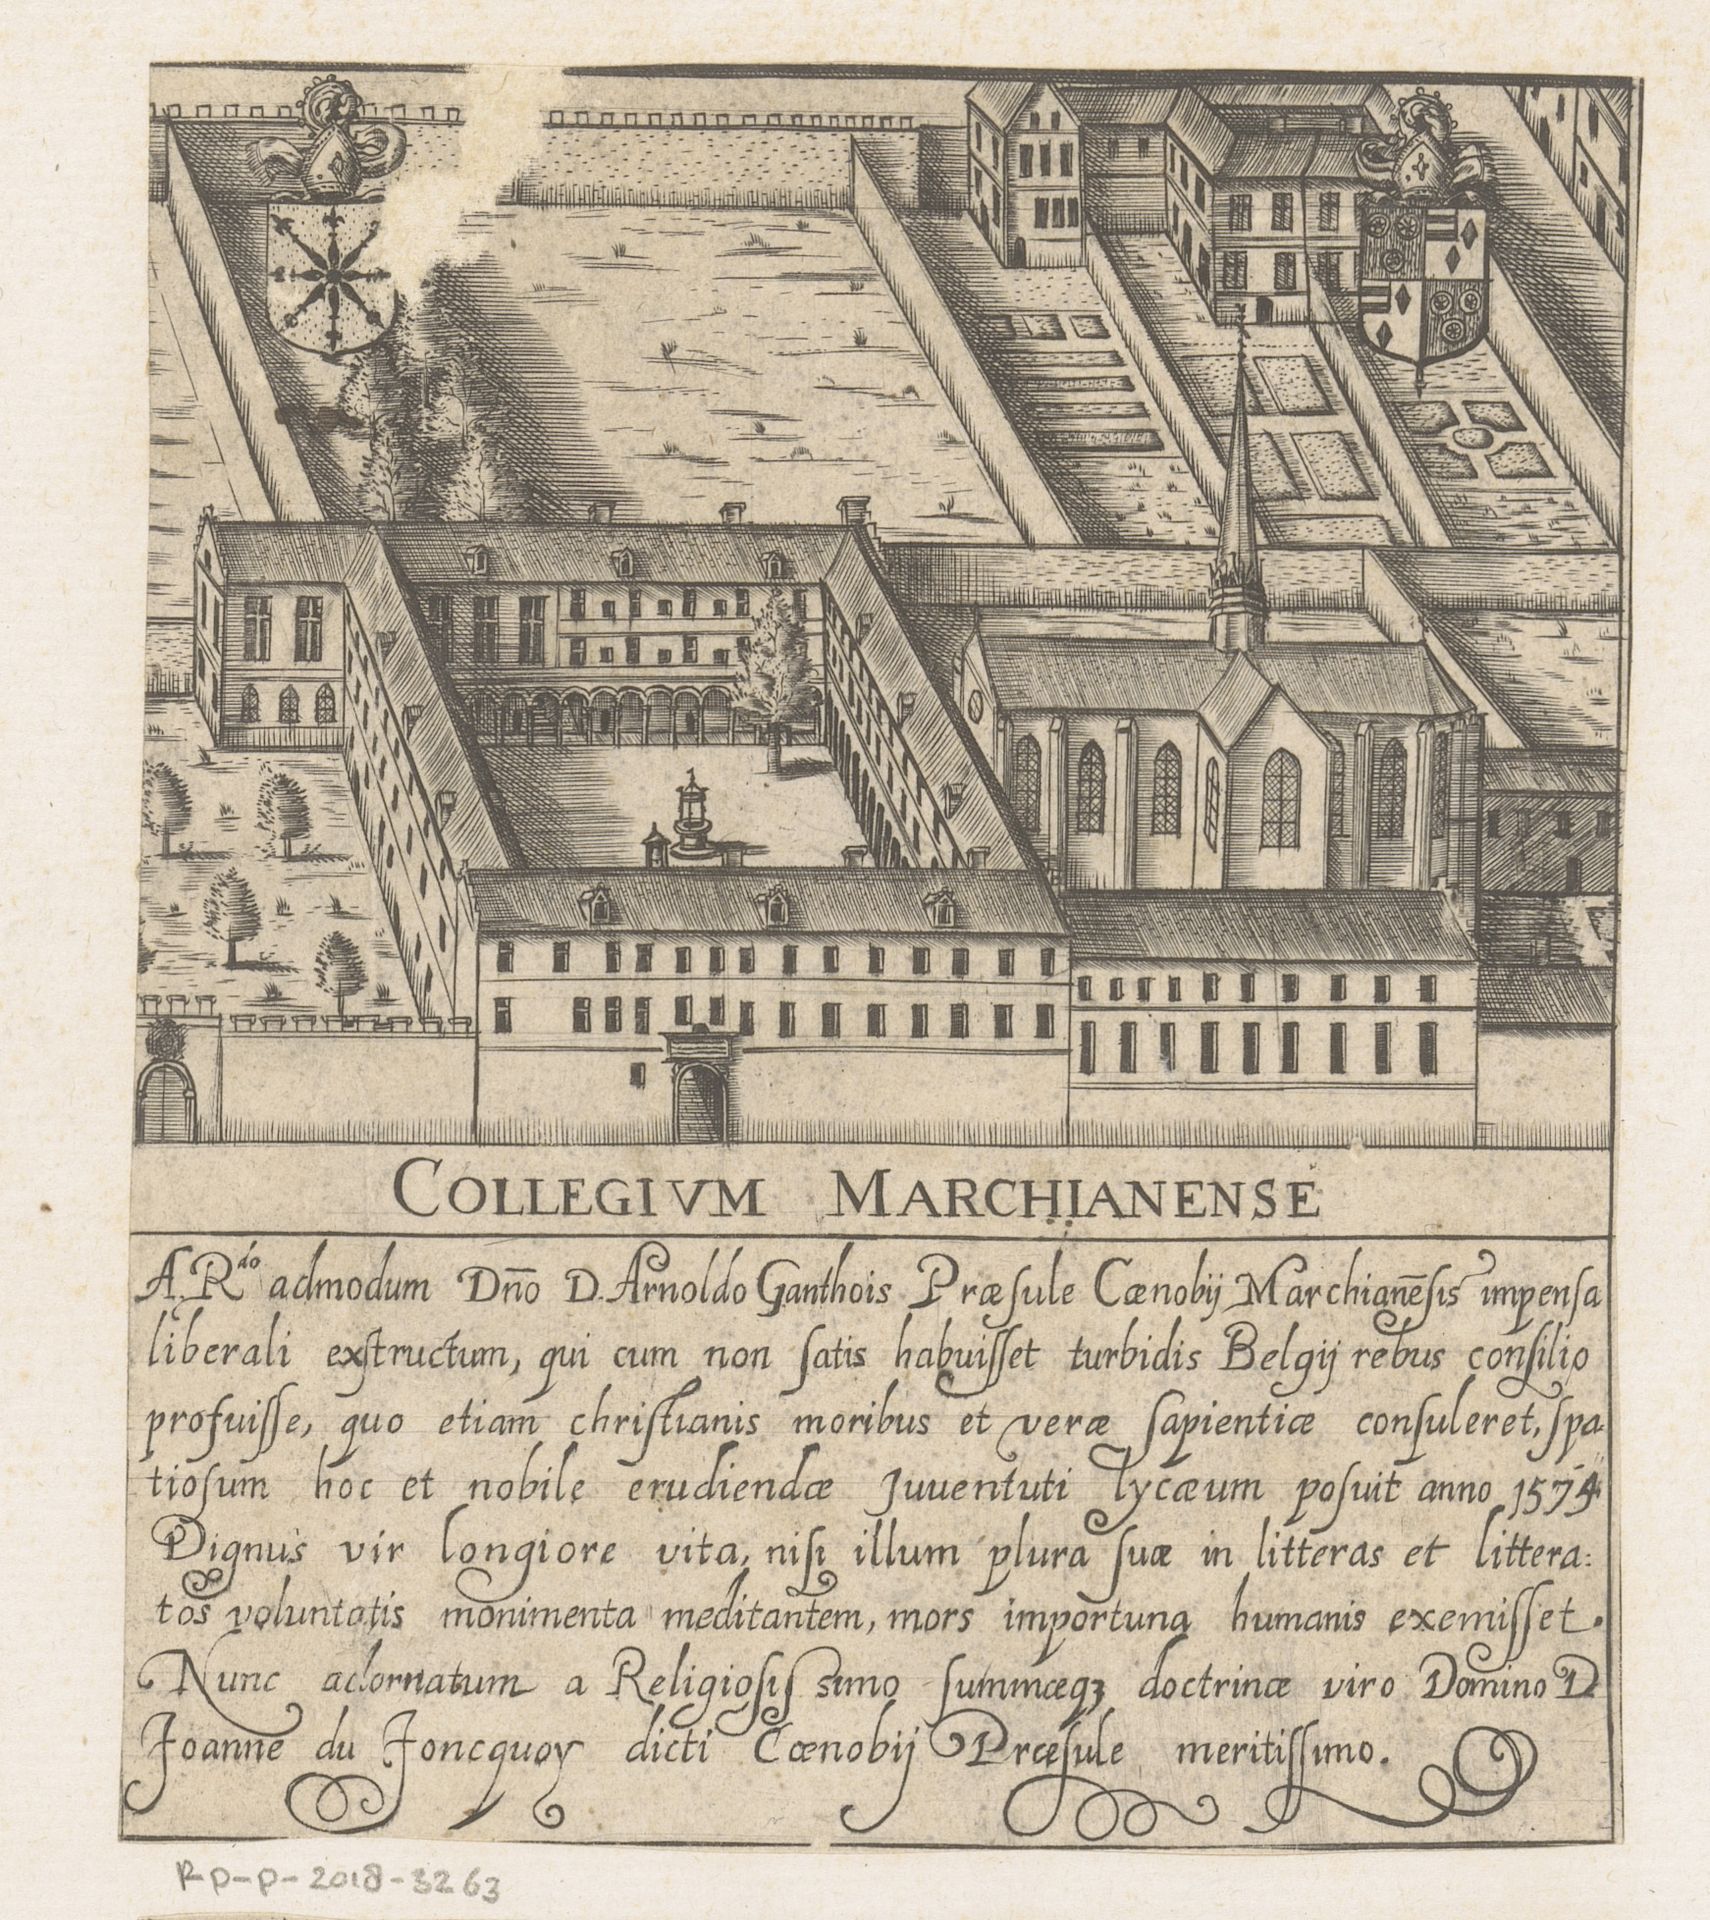 COLLEGIVM MARCHIANENSE
A. R.do admodum Dño D. Arnoldo Ganthois Præsule Cœnobij Marchianēsis impensa
liberali exstructum, qui cum non satis habuisset turbidis Belgij rebus consilio
profuisse, quo etiam christianis moribus et veræ sapientiæ consuleret, spa-
tiosum hoc et nobile erudiendæ Juventuti lycæum posuit anno 1574
Dignus vir longiore vita, nisi illum plura suæ in litteras et littera:
tos voluntatis monimenta meditantem, mors importuna humanis exemisset.
Nunc adornatum a Religiosissimo summæqз doctrinæ viro Domino D
Joanne du Joncquoy dicti Cœnobij Præsule meritissimo.
RP-P-2018-3263